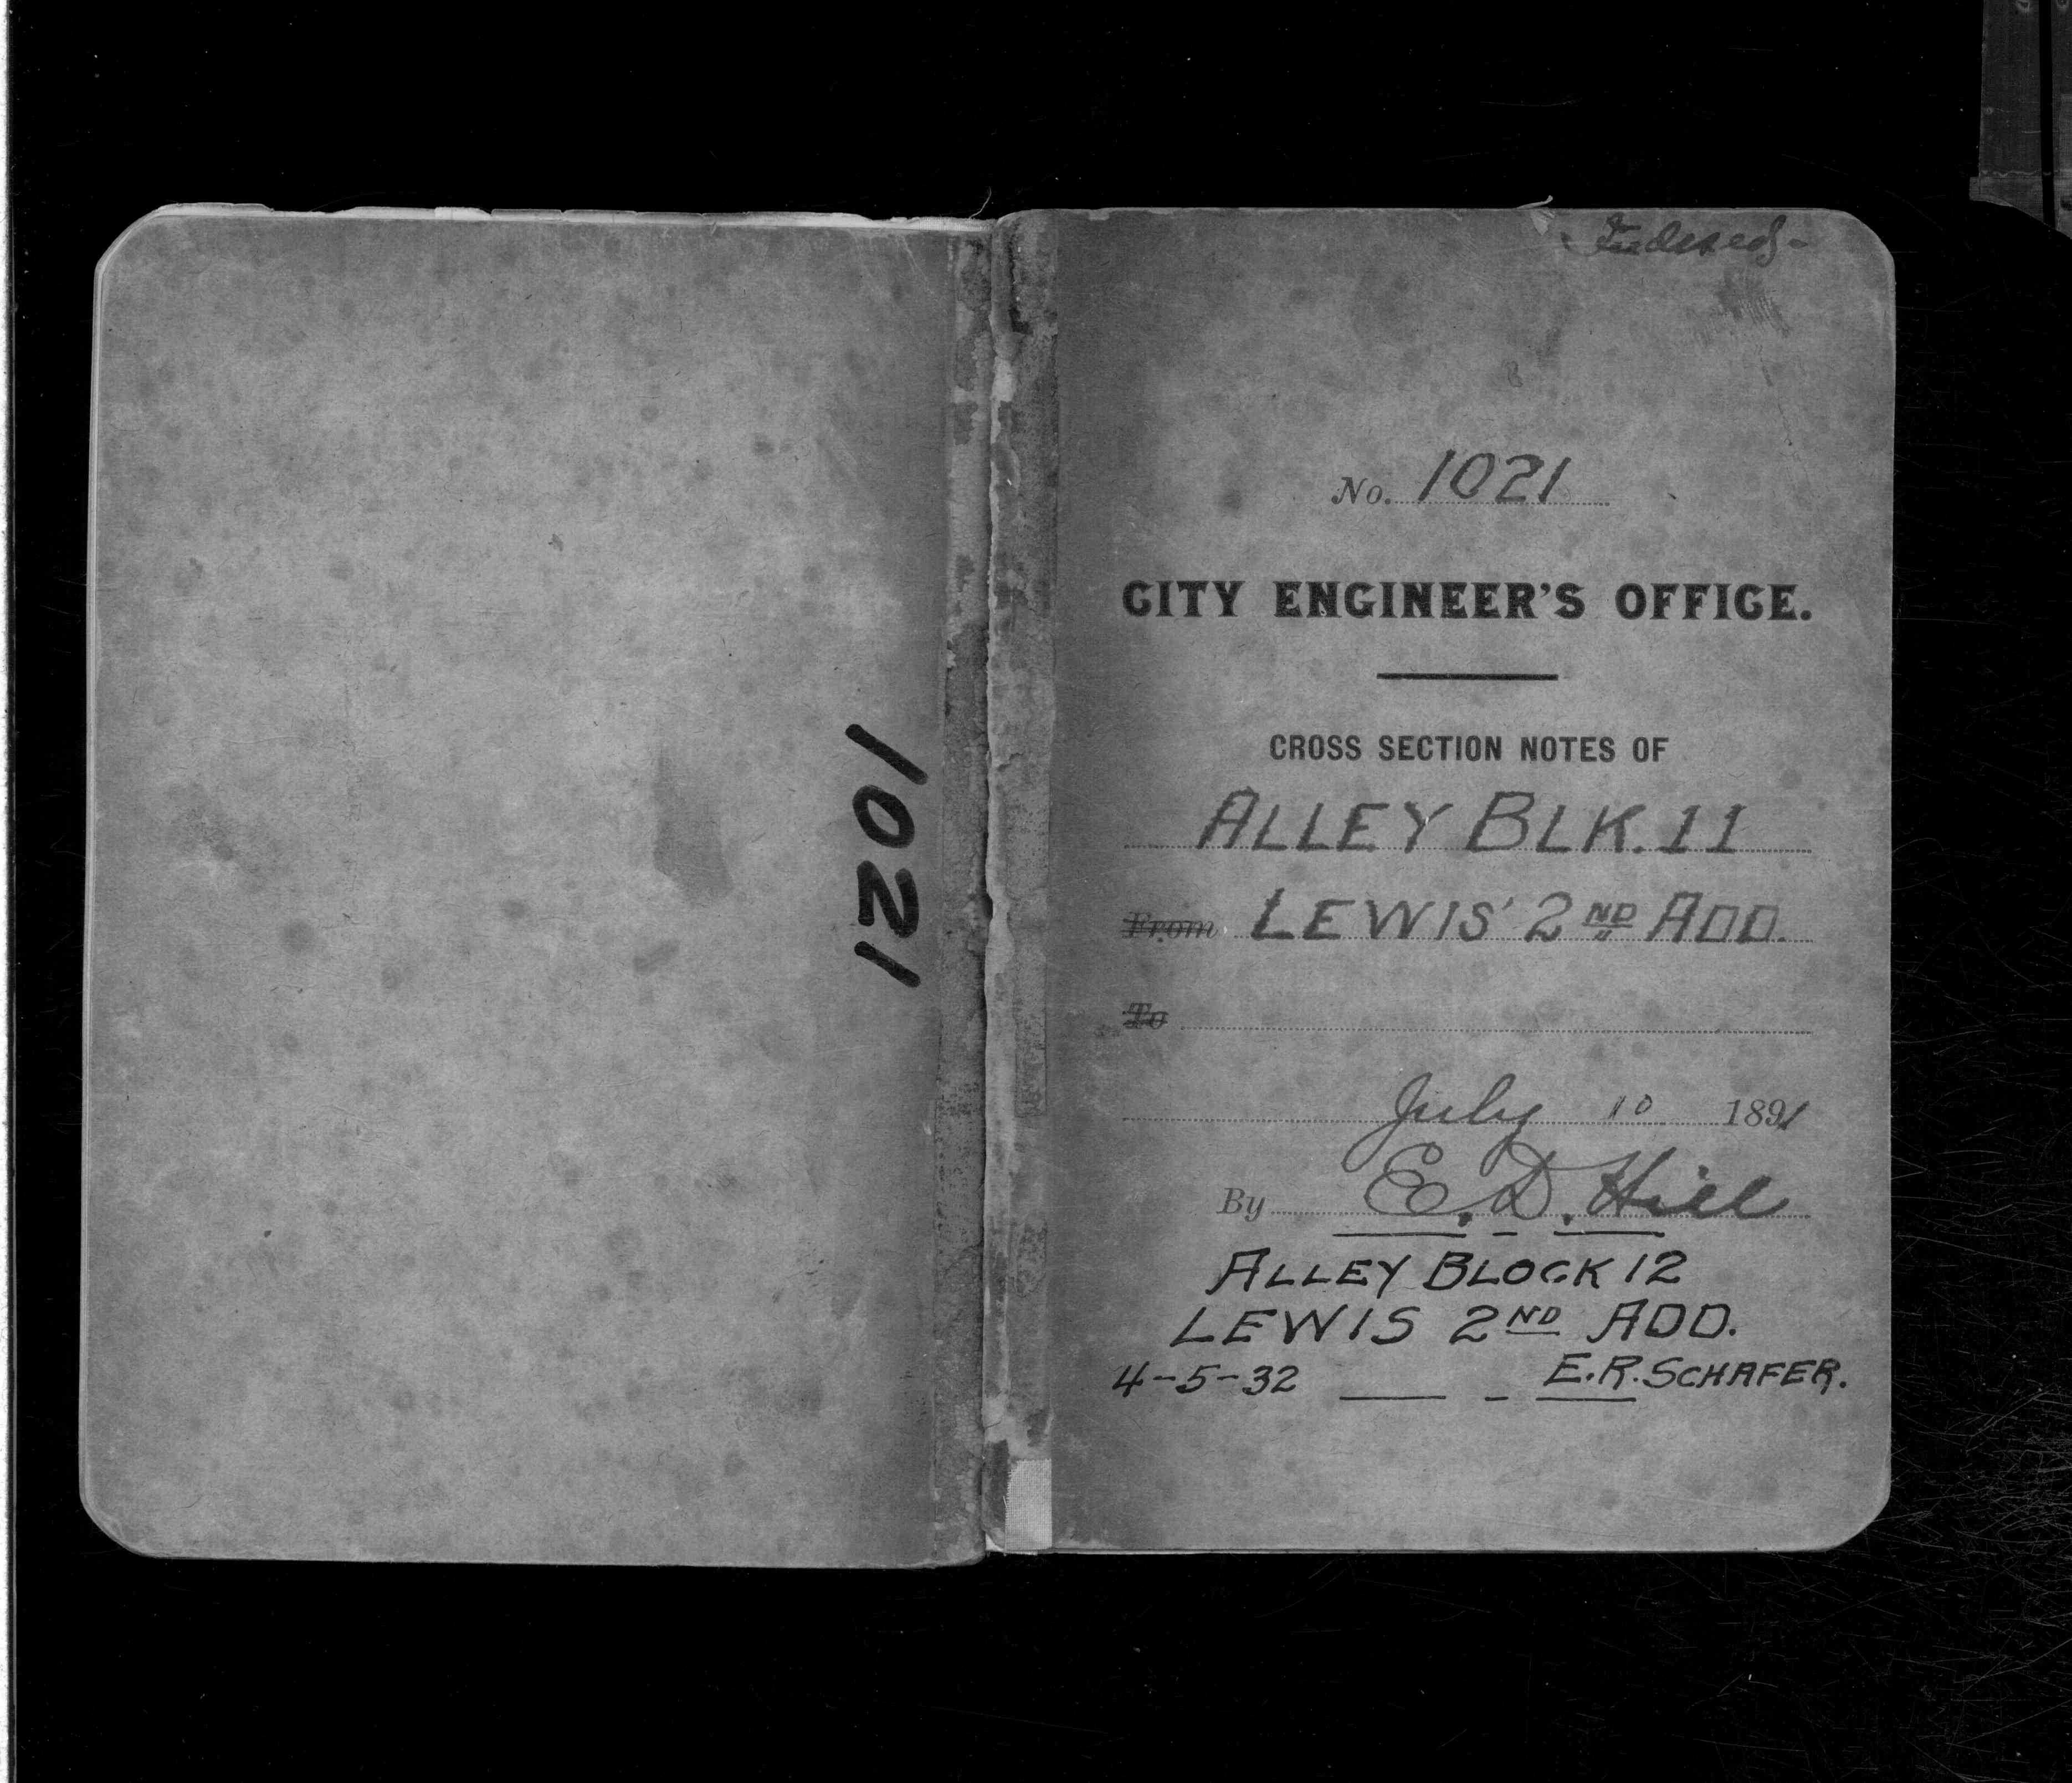 1021
Indexed-
No. 1021
CITY ENGINEER'S OFFICE.
CROSS SECTION NOTES OF
ALLEY BLK. 11
From LEWIS' 2ND ADD.
To
July 10 1891
By E. D. Hill
ALLEY BLOCK 12
LEWIS 2ND ADD.
4-5-32 E.R. SCHAFER.